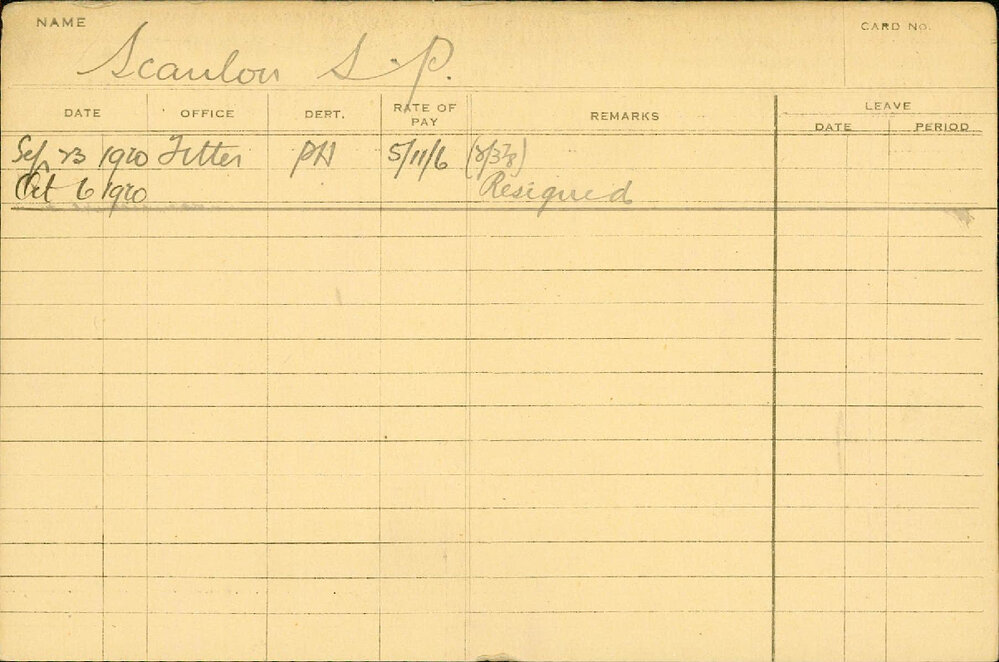 NAME CARD No.
Scanlon S. P.
DATE OFFICE DEPT. RATE OF PAY REMARKS LEAVE
DATE PERIOD
Sep 23 1920 Fitter PH 5/11/6 (2/3⅞)
Oct 6 1920 Resigned